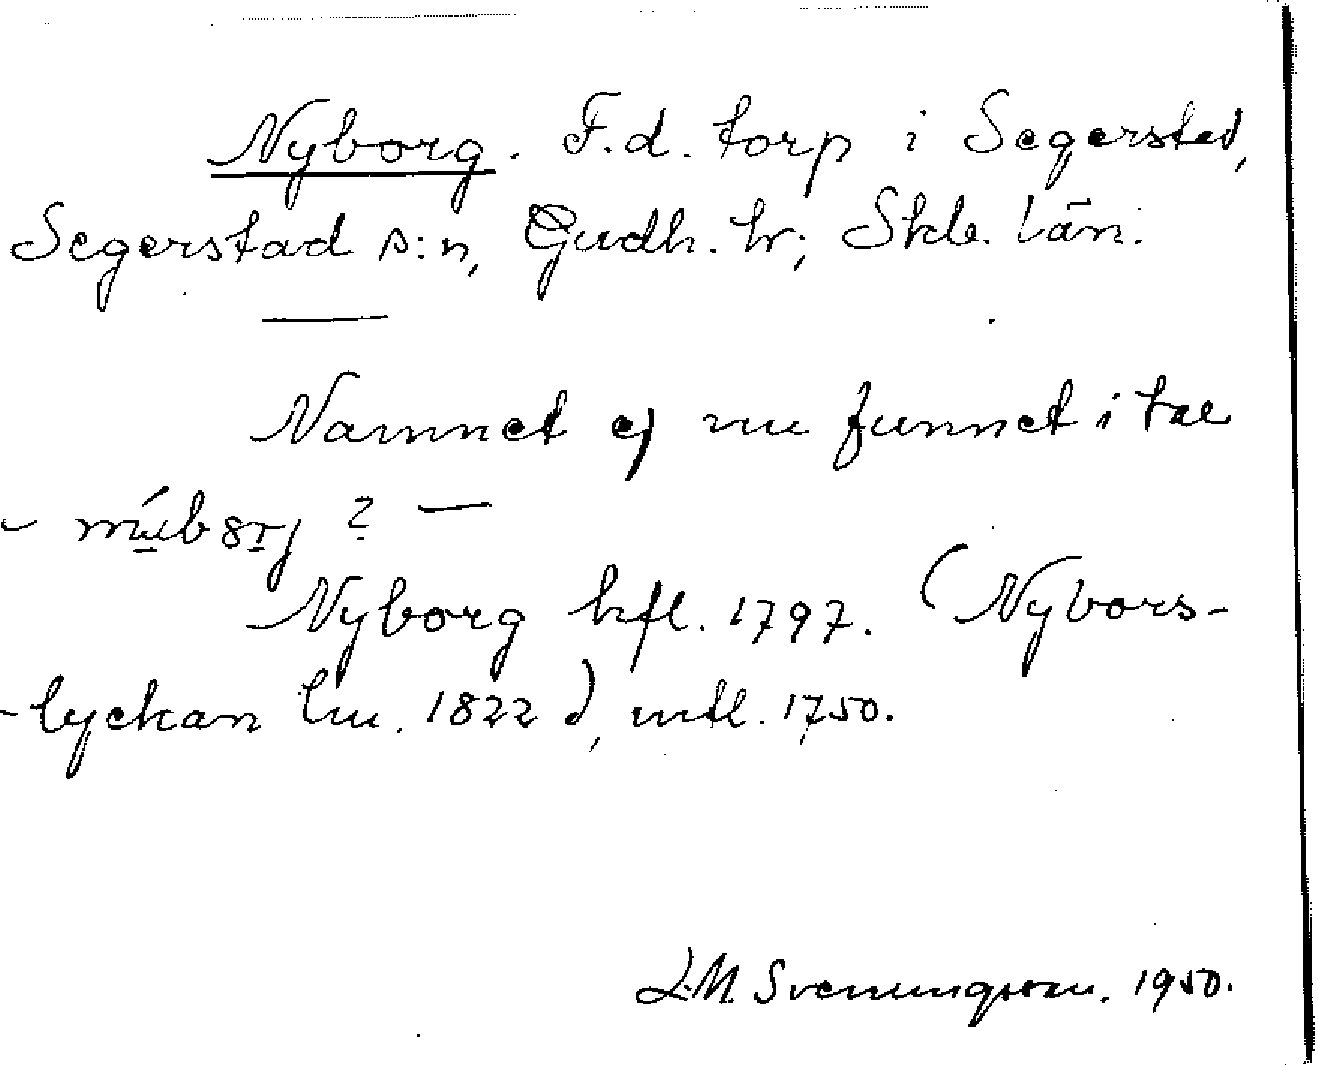 Nyborg. F.d. torp i Segerstad,
Segerstad s:n, Gudh. hr; Skb. län.
Namnet ej nu funnet i tal
Nyborg hfl. 1797. (Nybors-
-lyckan lm. 1822), mtl. 1750.
L.M. Svenungsson. 1950.